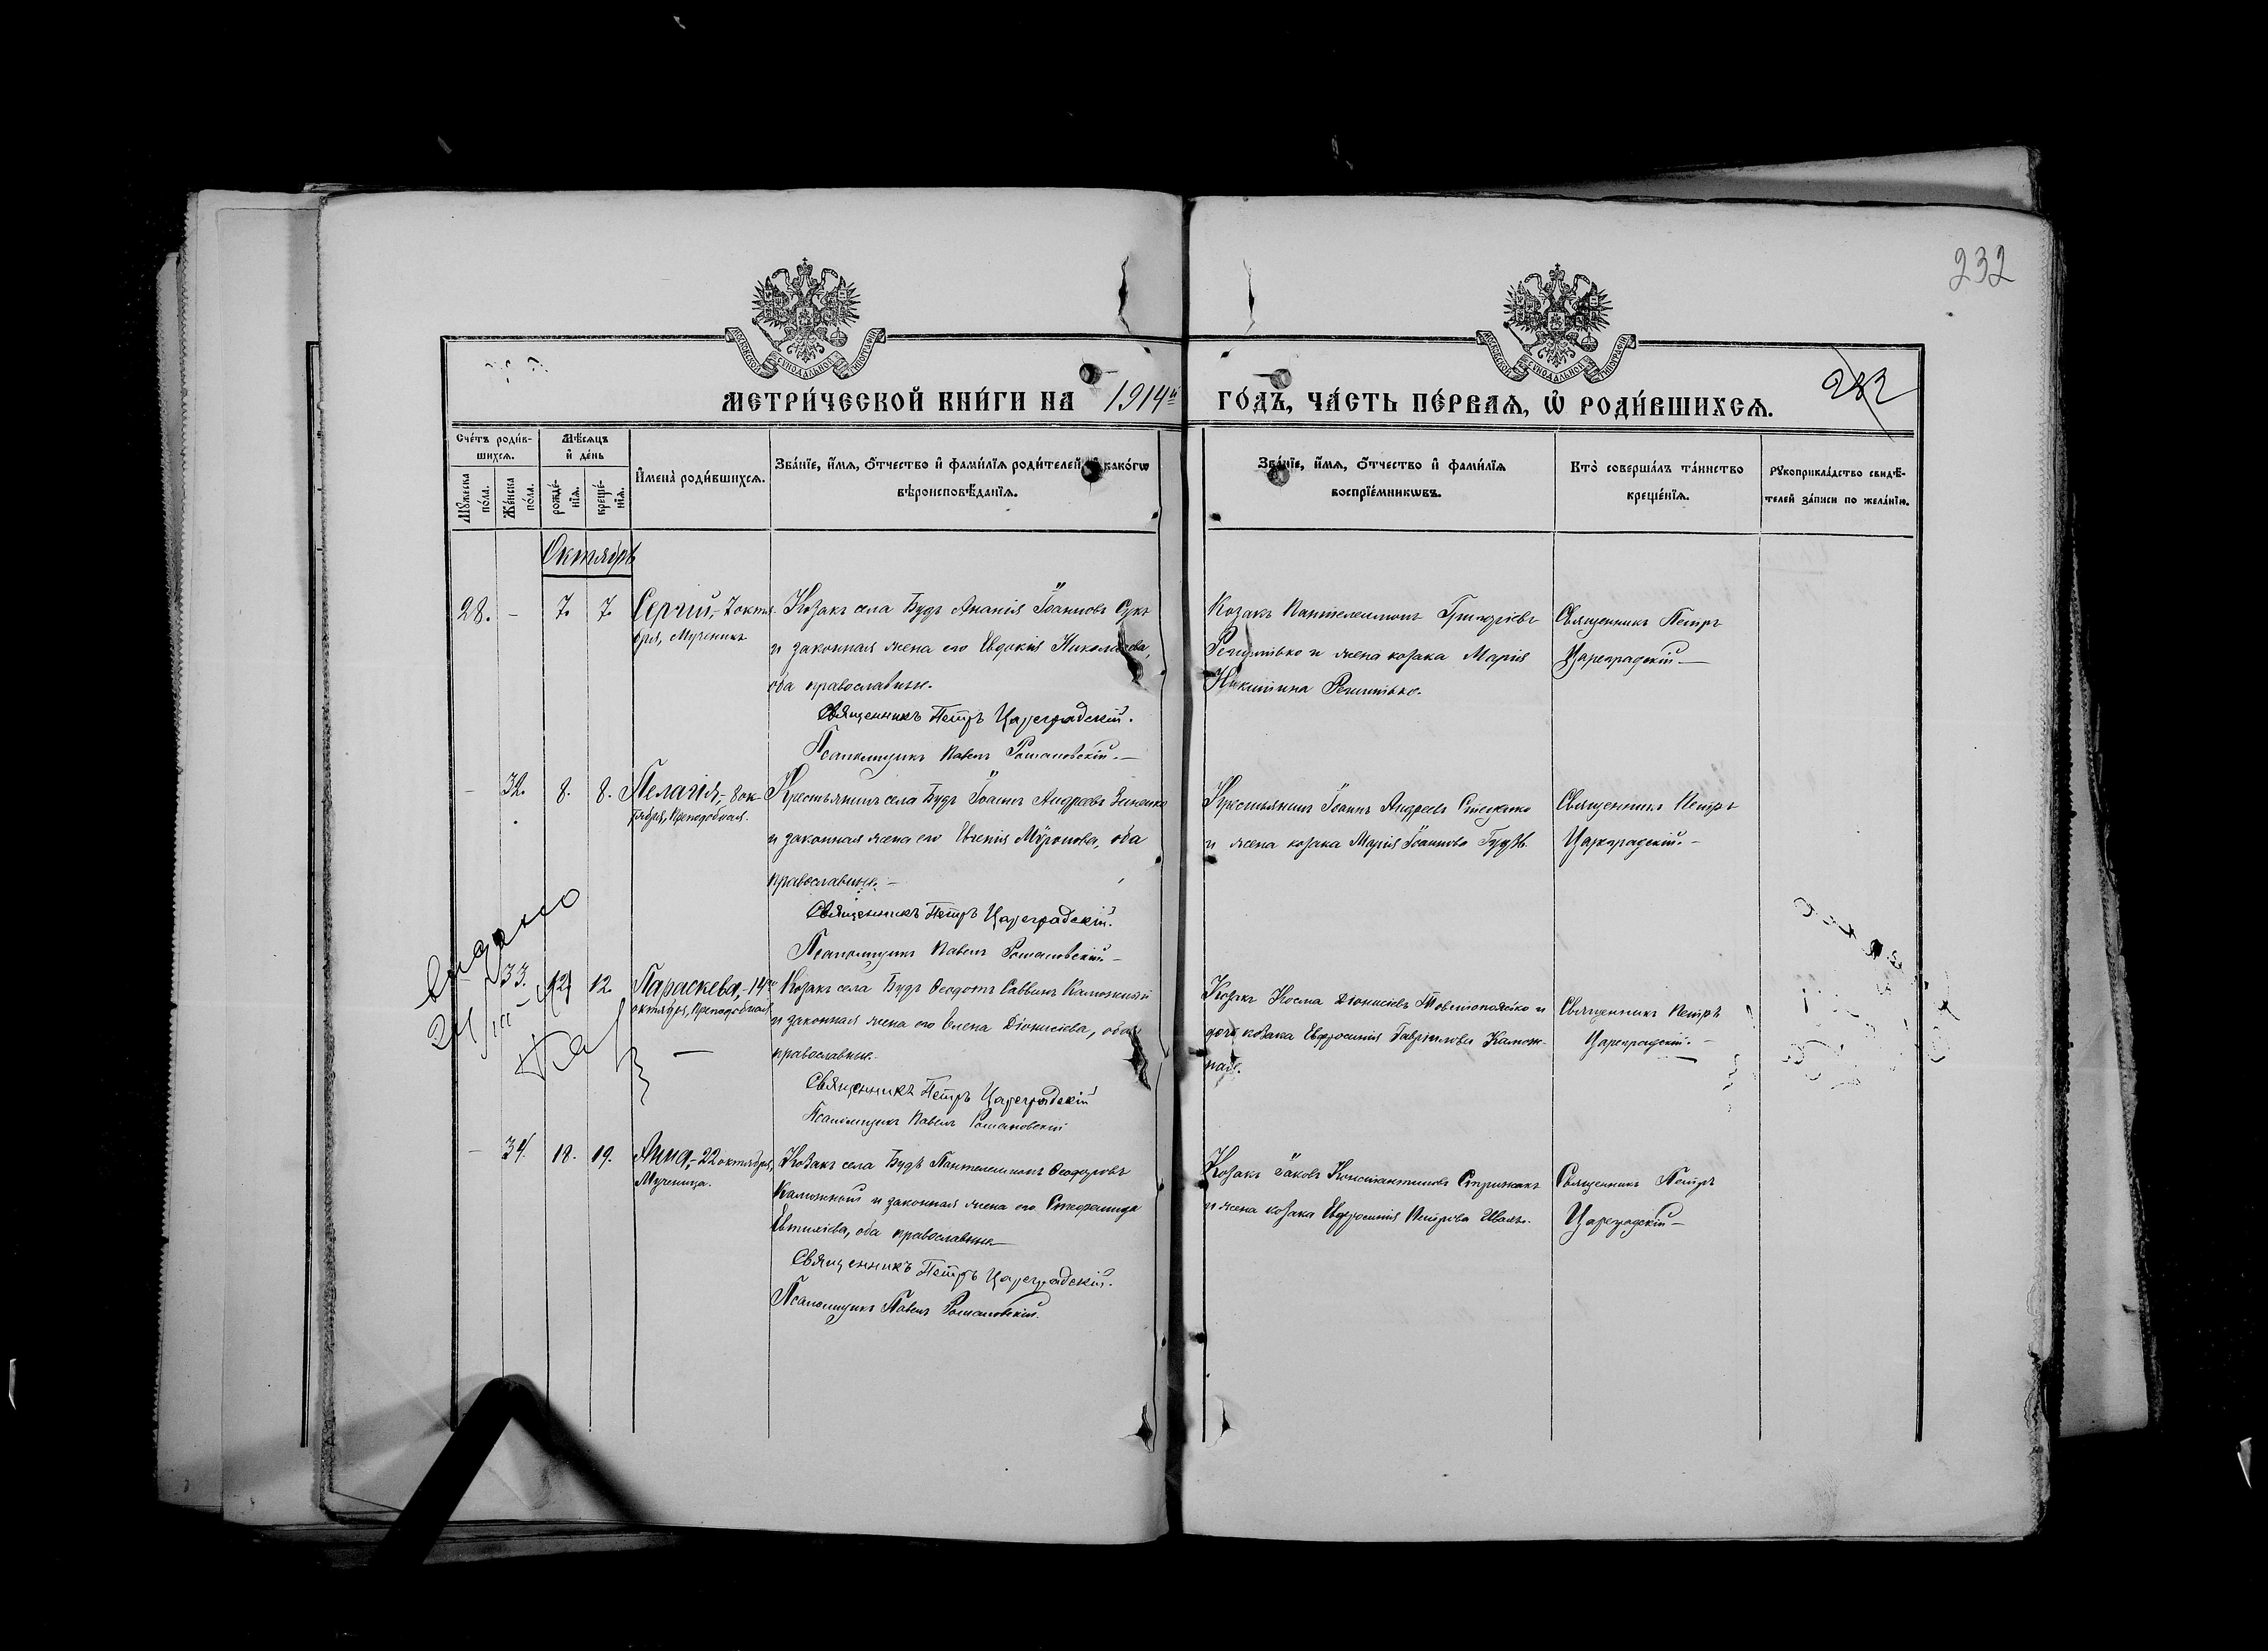 232
МОСКОВСКОЙ СѴНОДАЛЬНОЙ ТИПОГРАФІИ
МОСКОВСКОЙ СѴНОДАЛЬНОЙ ТИПОГРАФІИ
МЕТРИ́ЧЕСКОЙ КНИ́ГИ НА 1914й ГО́ДЪ, ЧА́СТЬ ПЕ́РВАѦ, Ѽ РОДИ́ВШИХСѦ.
232
Сче́тъ роди́в-
шихсѧ.
Мꙋжеска по́ла.
Же́нска по́ла.
Мѣ́сѧцъ и҆ де́нь
рожде́-нїѧ.
креще́-нїѧ.
И҆мена̀ роди́вшихсѧ.
Зва́нїе, и҆́мѧ, ѻ҆́тчество и҆ фами́лїѧ роди́телей, и҆ како́гѡ
вѣроисповѣ́данїѧ.
Зва́нїе, и҆́мѧ, ѻ҆́тчество и҆ фами́лїѧ
воспрїе́мникѡвъ.
Кто̀ соверша́лъ та́инство
креще́нїѧ.
Рꙋкоприкла́дство свидѣ́-
телей за́писи по жела́нїю.
Октябрь
28. - 7. 7. Сергий,- 7 октя-
бря, Мученикъ
Козакъ села Будъ Ананія Іоанновъ
и законная жена его Евдокія Николаева,
оба православные.
Священникъ Петръ Цареградскій.
Псаломщикъ Павелъ Романовскій.—
Козакъ Пантелеимонъ Григоріевъ
и жена козака Марія
Никитина
Священникъ Петръ
Цареградскій—
- 32. 8. 8. Пелагія,- 8 ок-
тября, Преподобная.
Крестьянинъ села Будъ Іоаннъ Андреевъ Зиненко
и законная жена его Евгенія Мѵронова, оба
православные.—
Священникъ Петръ Цареградскій.
Псаломщикъ Павелъ Романовскій—
Крестьянинъ Іоаннъ Андреевъ
и жена козака Марія Іоаннова
Священникъ Петръ
Цареградскій.—
Выдано
24/III
33. 12. 12. Параскева,- 14го
октября, Преподобная
Козакъ села Будъ Феодотъ Саввинъ Калюжный
и законная жена его Елена Діонисіева, оба
православные
Священникъ Петръ Цареградскій
Псаломщикъ Павелъ Романовскій
Козакъ Косма Діонисіевъ Товстопятко и
дочь козака Евфросинія Гавріилова Калюж-
ная.
Священникъ Петръ
Цареградскій.—
- 34. 18. 19. Анна,- 22 октября,
Мученица.
Козакъ села Будъ Пантелеимонъ Феодоровъ
Калюжный и законная жена его Стефанида
Евтихіева, оба православные—
Священникъ Петръ Цареградскій.
Псаломщикъ Павелъ Романовскій.
Козакъ Іаковъ Константиновъ Стрижакъ
и жена козака Евфросинія Петрова
Священникъ Петръ
Цареградскій—